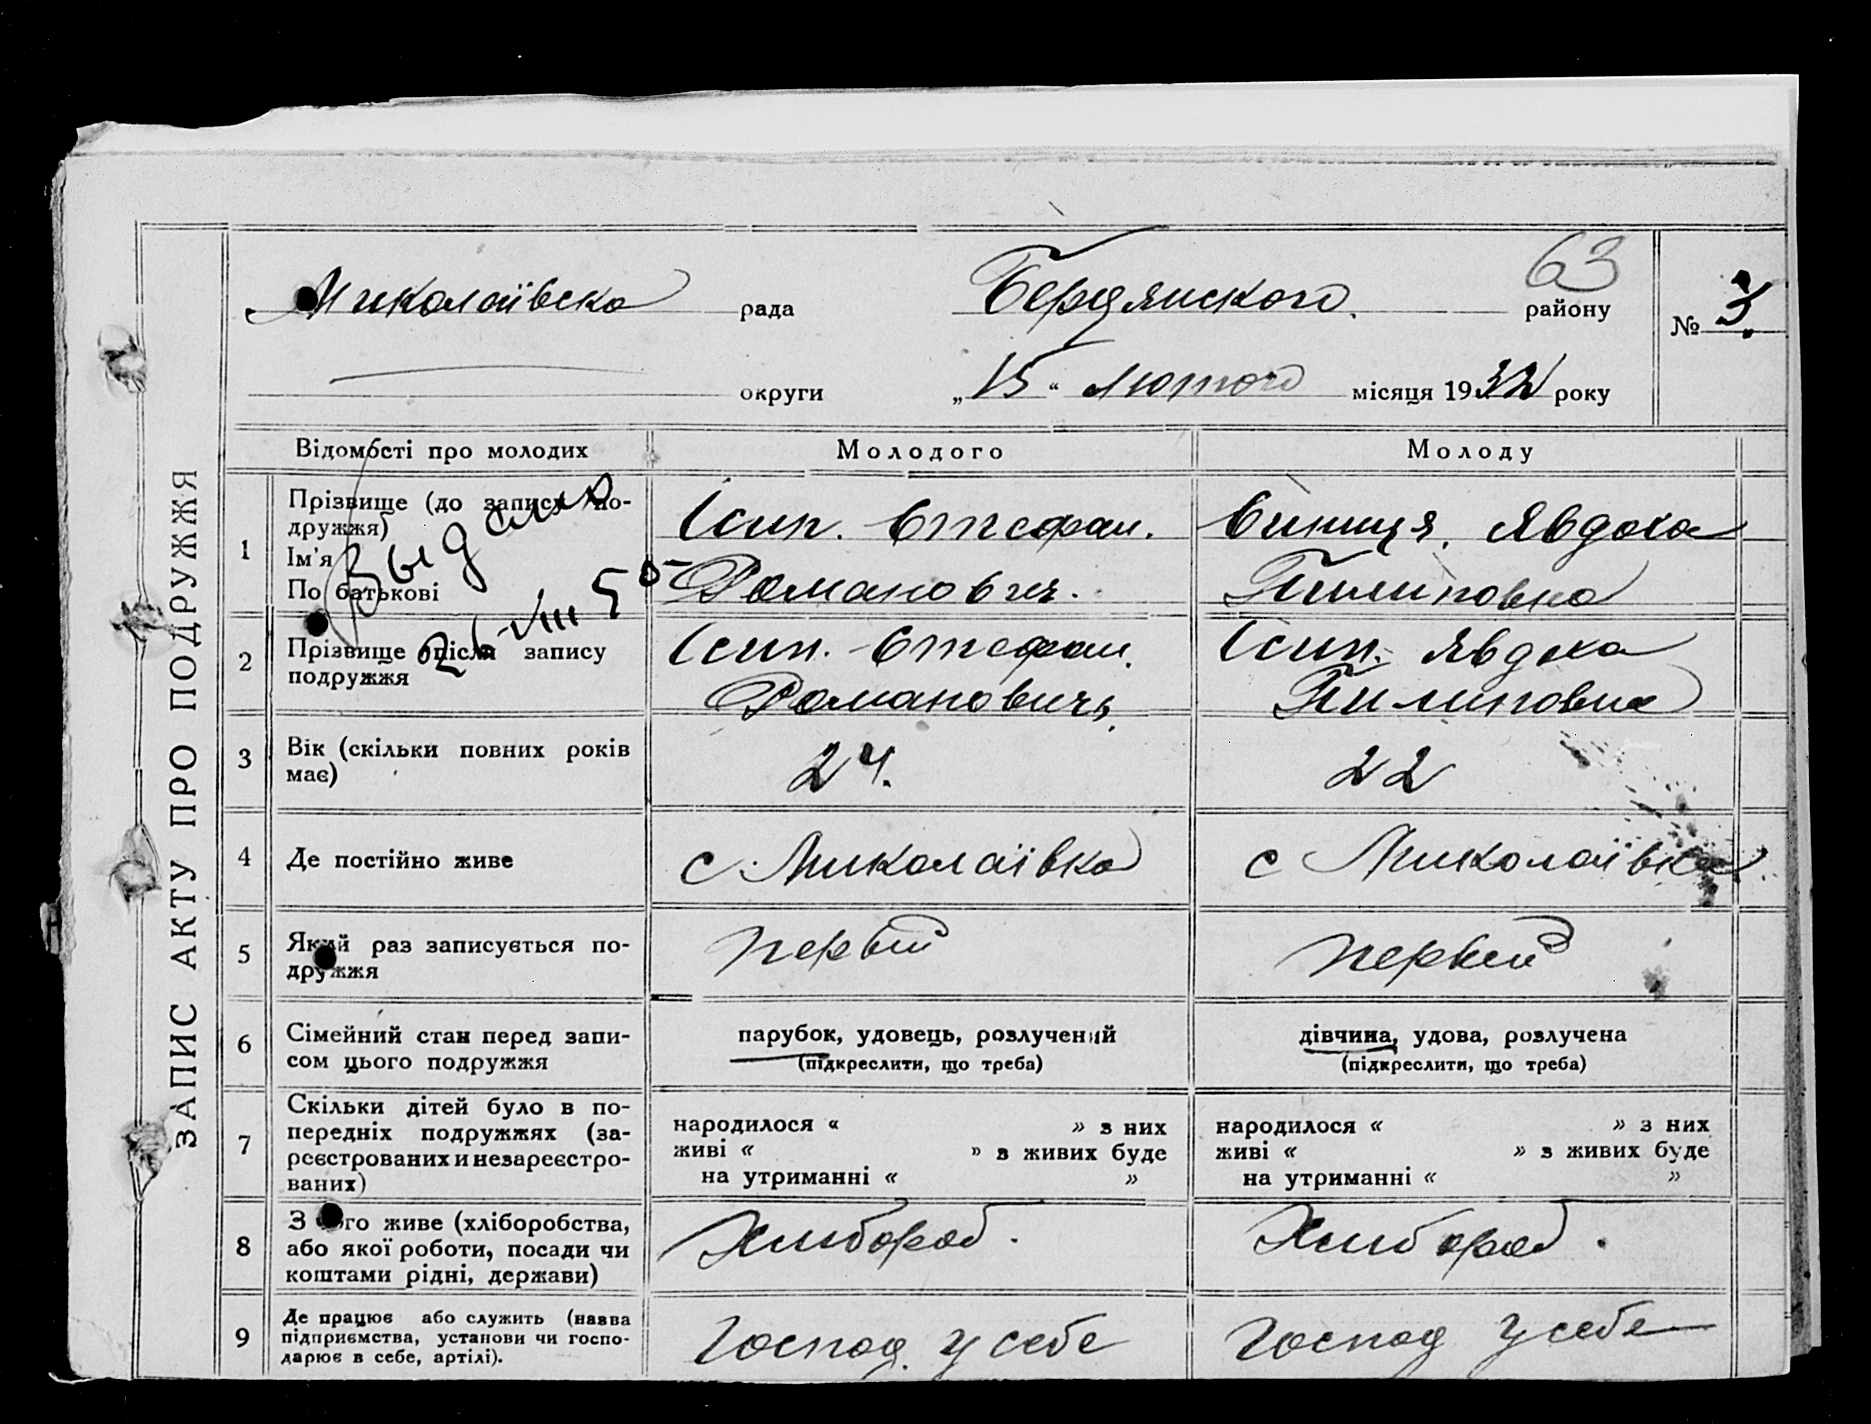 ЗАПИС АКТУ ПРО ПОДРУЖЖЯ
63
Миколаївска рада Бердянского району № 3.
округи „15“ лютого місяця 1932 року
Відомості про молодих Молодого Молоду
1 Прізвище (до запису по-
дружжя)
Ім'я
По батькові
Выдано
26-VIII 50
Ісип. Стефан.
Романович.
Синиця. Явдоха
Пилиповна
2 Прізвище після запису
подружжя
Ісип. Стефан.
Романовичъ.
Ісип. Явдоха
Пилиповна
3 Вік (скільки повних років
має)
24.
22
4 Де постійно живе с. Миколаївка с Миколаївка.
5 Який раз записується по-
дружжя
первий
первий
6 Сімейний стан перед запи-
сом цього подружжя
парубок, удовець, розлучений
(підкреслити, що треба)
дівчина, удова, розлучена
(підкреслити, що треба)
7 Скільки дітей було в по-
передніх подружжях (за-
реєстрованих и незареєстро-
ваних)
народилося « » з них
живі « » з живих буде
на утриманні « »
народилося « » з них
живі « » з живих буде
на утриманні « »
8 З чого живе (хліборобства,
або якої роботи, посади чи
коштами рідні, держави)
Хлибороб.
Хлибороб.
9 Де працює або служить (назва
підприємства, установи чи госпо-
дарює в себе, артілі).
Господ. у себе
Господ у себе